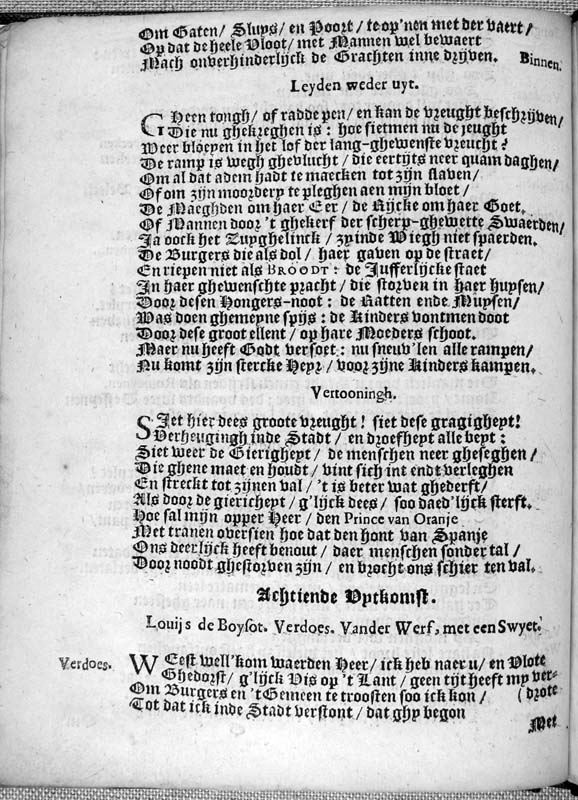 Om Gaten/ Sluys/ en Poort/ te op'nen met der vaert/
Op dat de heele Vloot/ met Mannen wel bewaert
Mach onverhinderlijck de Grachten inne drijven. Binnen.
Leyden weder uyt.
GHeen tongh/ of radde pen/ en kan de vreught beschrijven/
Die nu ghekreghen is: hoe sietmen nu de jeught
Weer bloeyen in het lof der lang-ghewenste vreucht?
De ramp is wegh ghevlucht/ die eertijts neer quam daghen/
Om al dat adem hadt te maecken tot zijn slaven/
Of om zijn moordery te pleghen aen mijn bloet/
De Maeghden om haer Eer/ de Rijcke om haer Goet.
Of Mannen door 't ghekerf der scherp-ghewette Swaerden/
Ja oock het Zuyghelinck/ zy inde Wiegh niet spaerden.
De Burgers die als dol/ haer gaven op de straet/
En riepen niet als BROODT: de Jufferlijcke staet
In haer ghewenschte pracht/ die storven in haer huysen/
Door desen Hongers-noot: de Ratten ende Muysen/
Was doen ghemeyne spijs: de kinders vontmen doot
Door dese groot ellent/ op hare Moeders schoot.
Maer nu heeft Godt versoet: nu sneuv'len alle rampen/
Nu komt zijn stercke Heyr/ voor zijne Kinders kampen.
Vertooningh.
SIet hier dees groote vreught! siet dese gragigheyt!
Verheugingh inde Stadt/ en droefheyt alle beyt:
Siet weer de Gierigheyt/ de menschen neer gheseghen/
Die ghene maet en houdt/ vint sich int endt verleghen
En streckt tot zijnen val/ 't is beter wat ghederft/
Als door de giericheyt/ g'lijck dees/ soo daed'lijck sterft.
Hoe sal mijn opper Heer/ den Prince van Oranje
Met tranen oversien hoe dat den hont van Spanje
Ons deerlijck heeft benout/ daer menschen sonder tal/
Door noodt ghestorven zijn/ en brocht ons schier ten val.
Achtiende Uytkomst.
Louijs de Boysot. Verdoes. Vander Werf, met een Swyet.
Verdoes. WEest well'kom waerden Heer/ ick heb naer u/ en Vlote
Ghedorst/ g'lijck Vis op 't Lant/ geen tijt heeft my ver-
Om Burgers en 't Gemeen te troosten soo ick kon/ (drote
Tot dat ick inde Stadt verstont/ dat ghy begon
Met